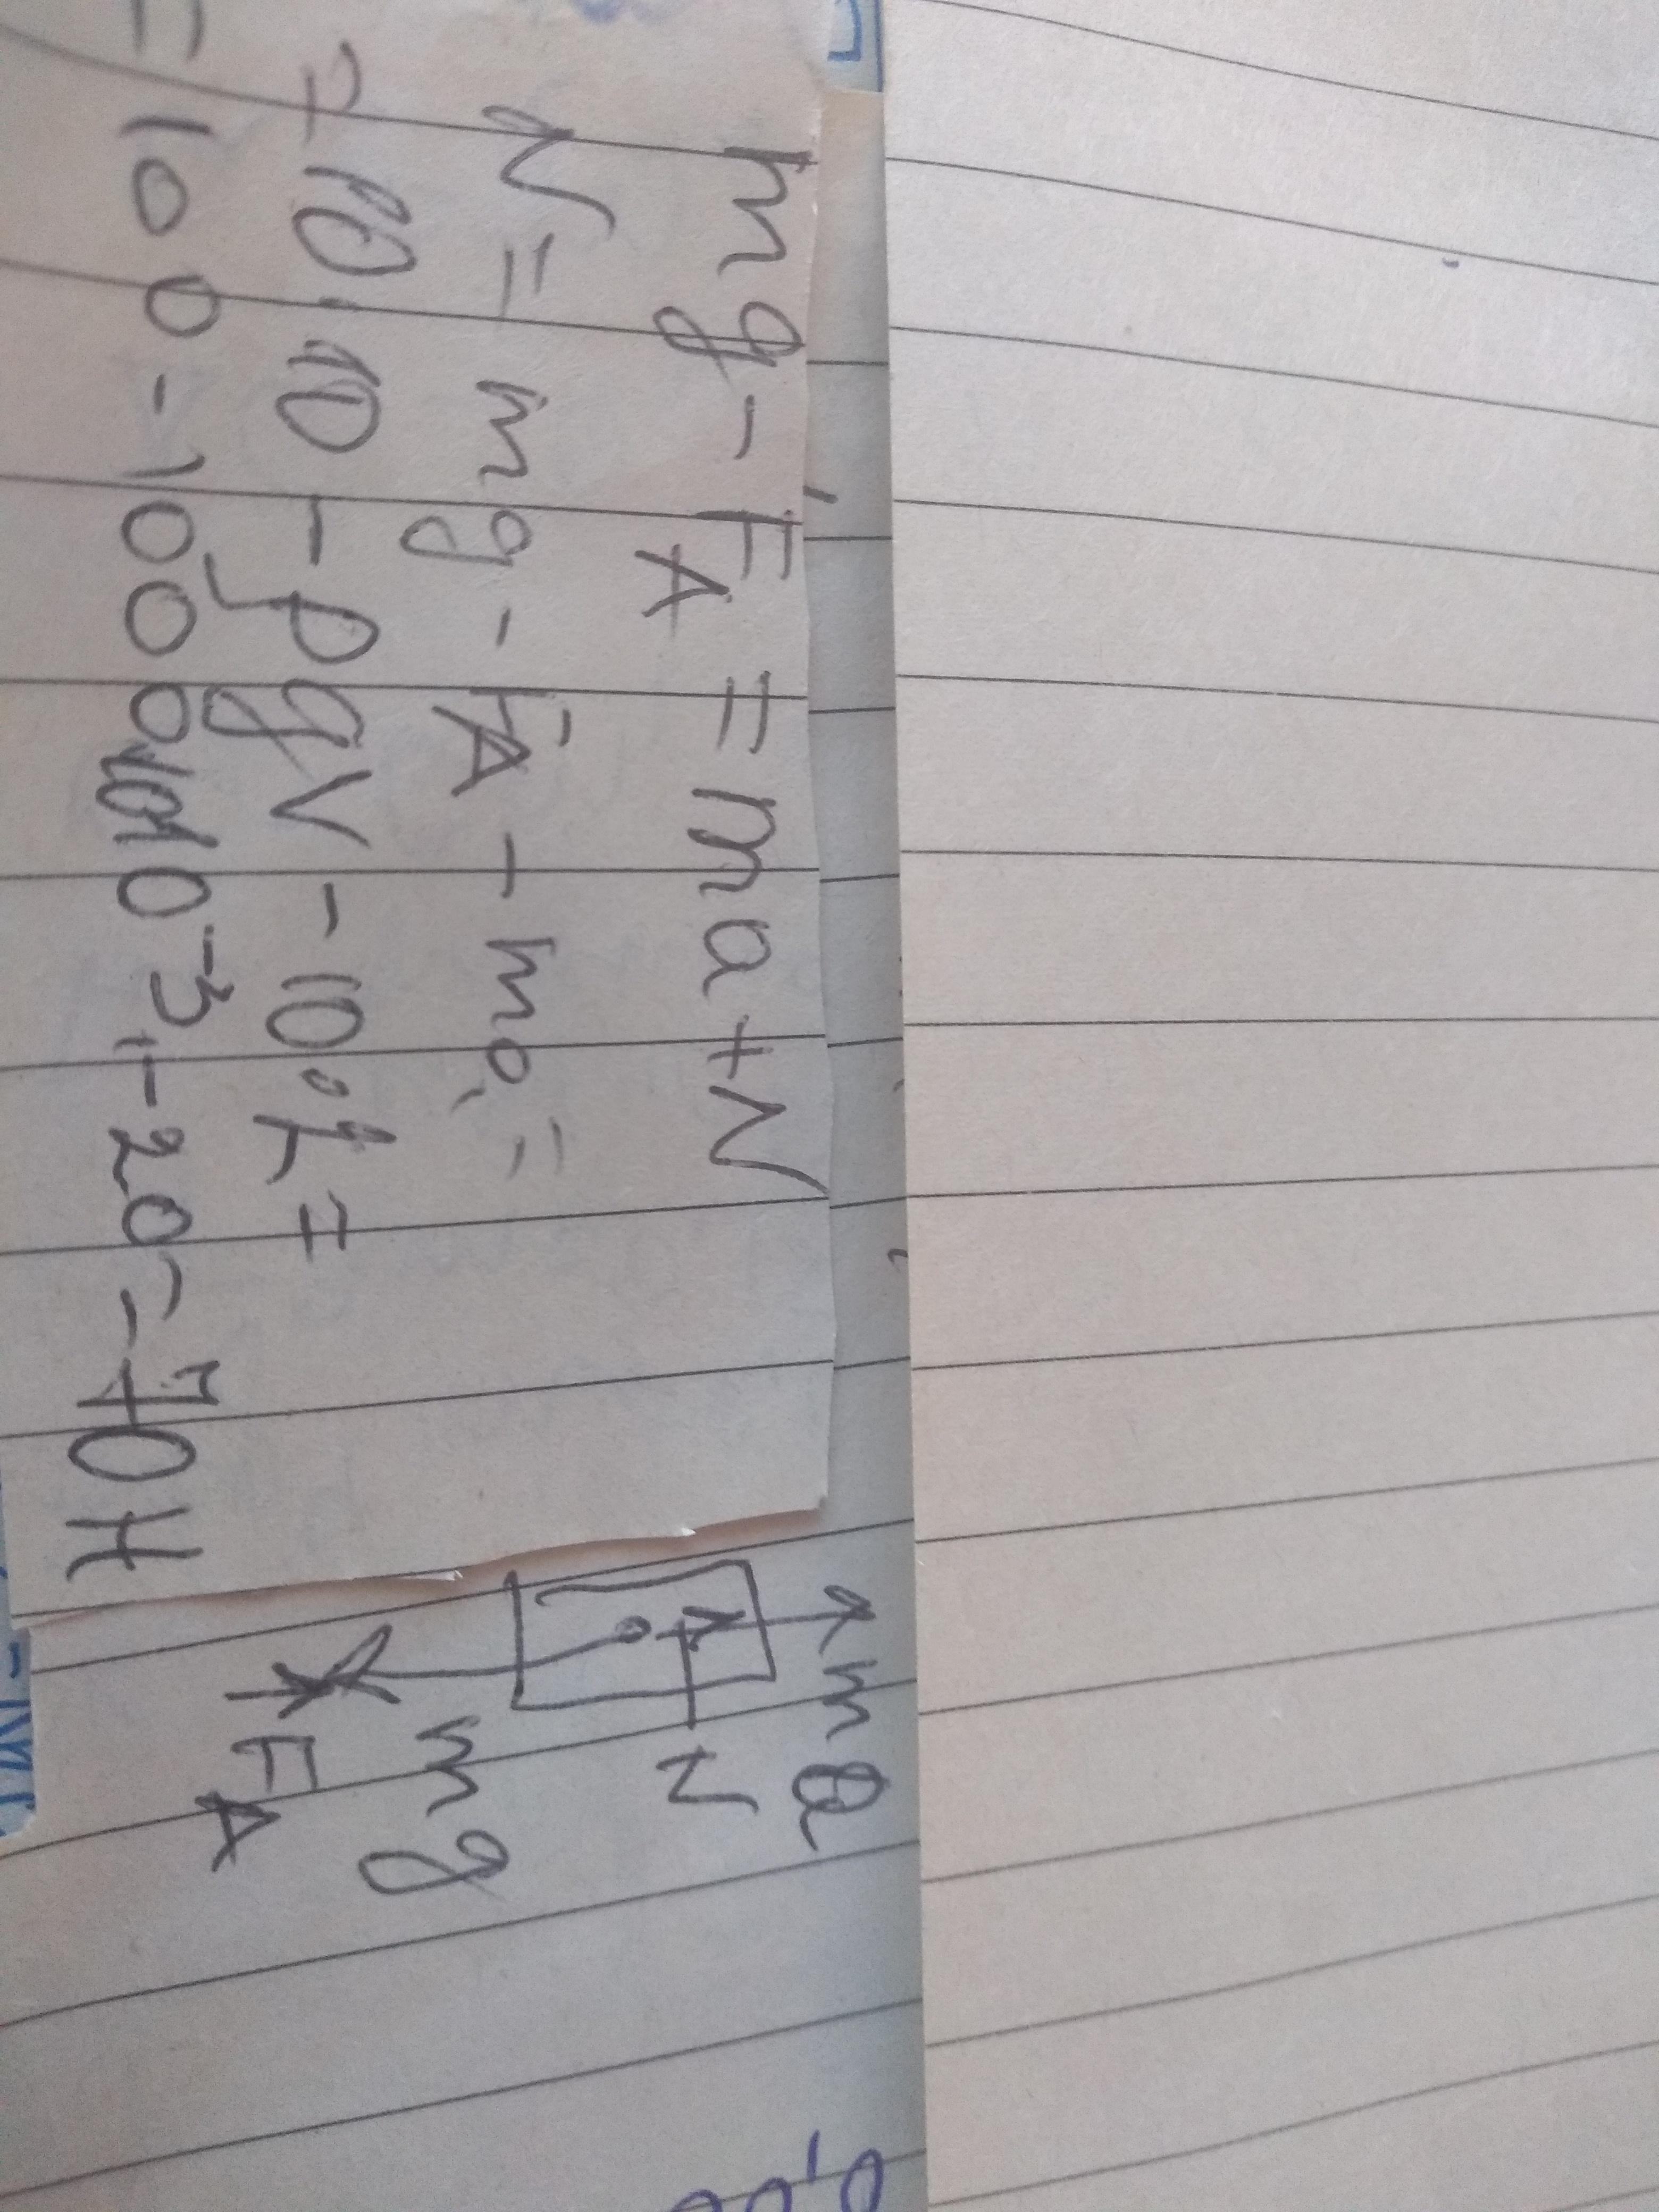 mg - FA = ma + N
N = mg - FA - ma =
= 10·10 - ρgV - 10·2 =
= 100 - 1000·10·10⁻³ - 20 = 70 Н
ma
N
mg
FA